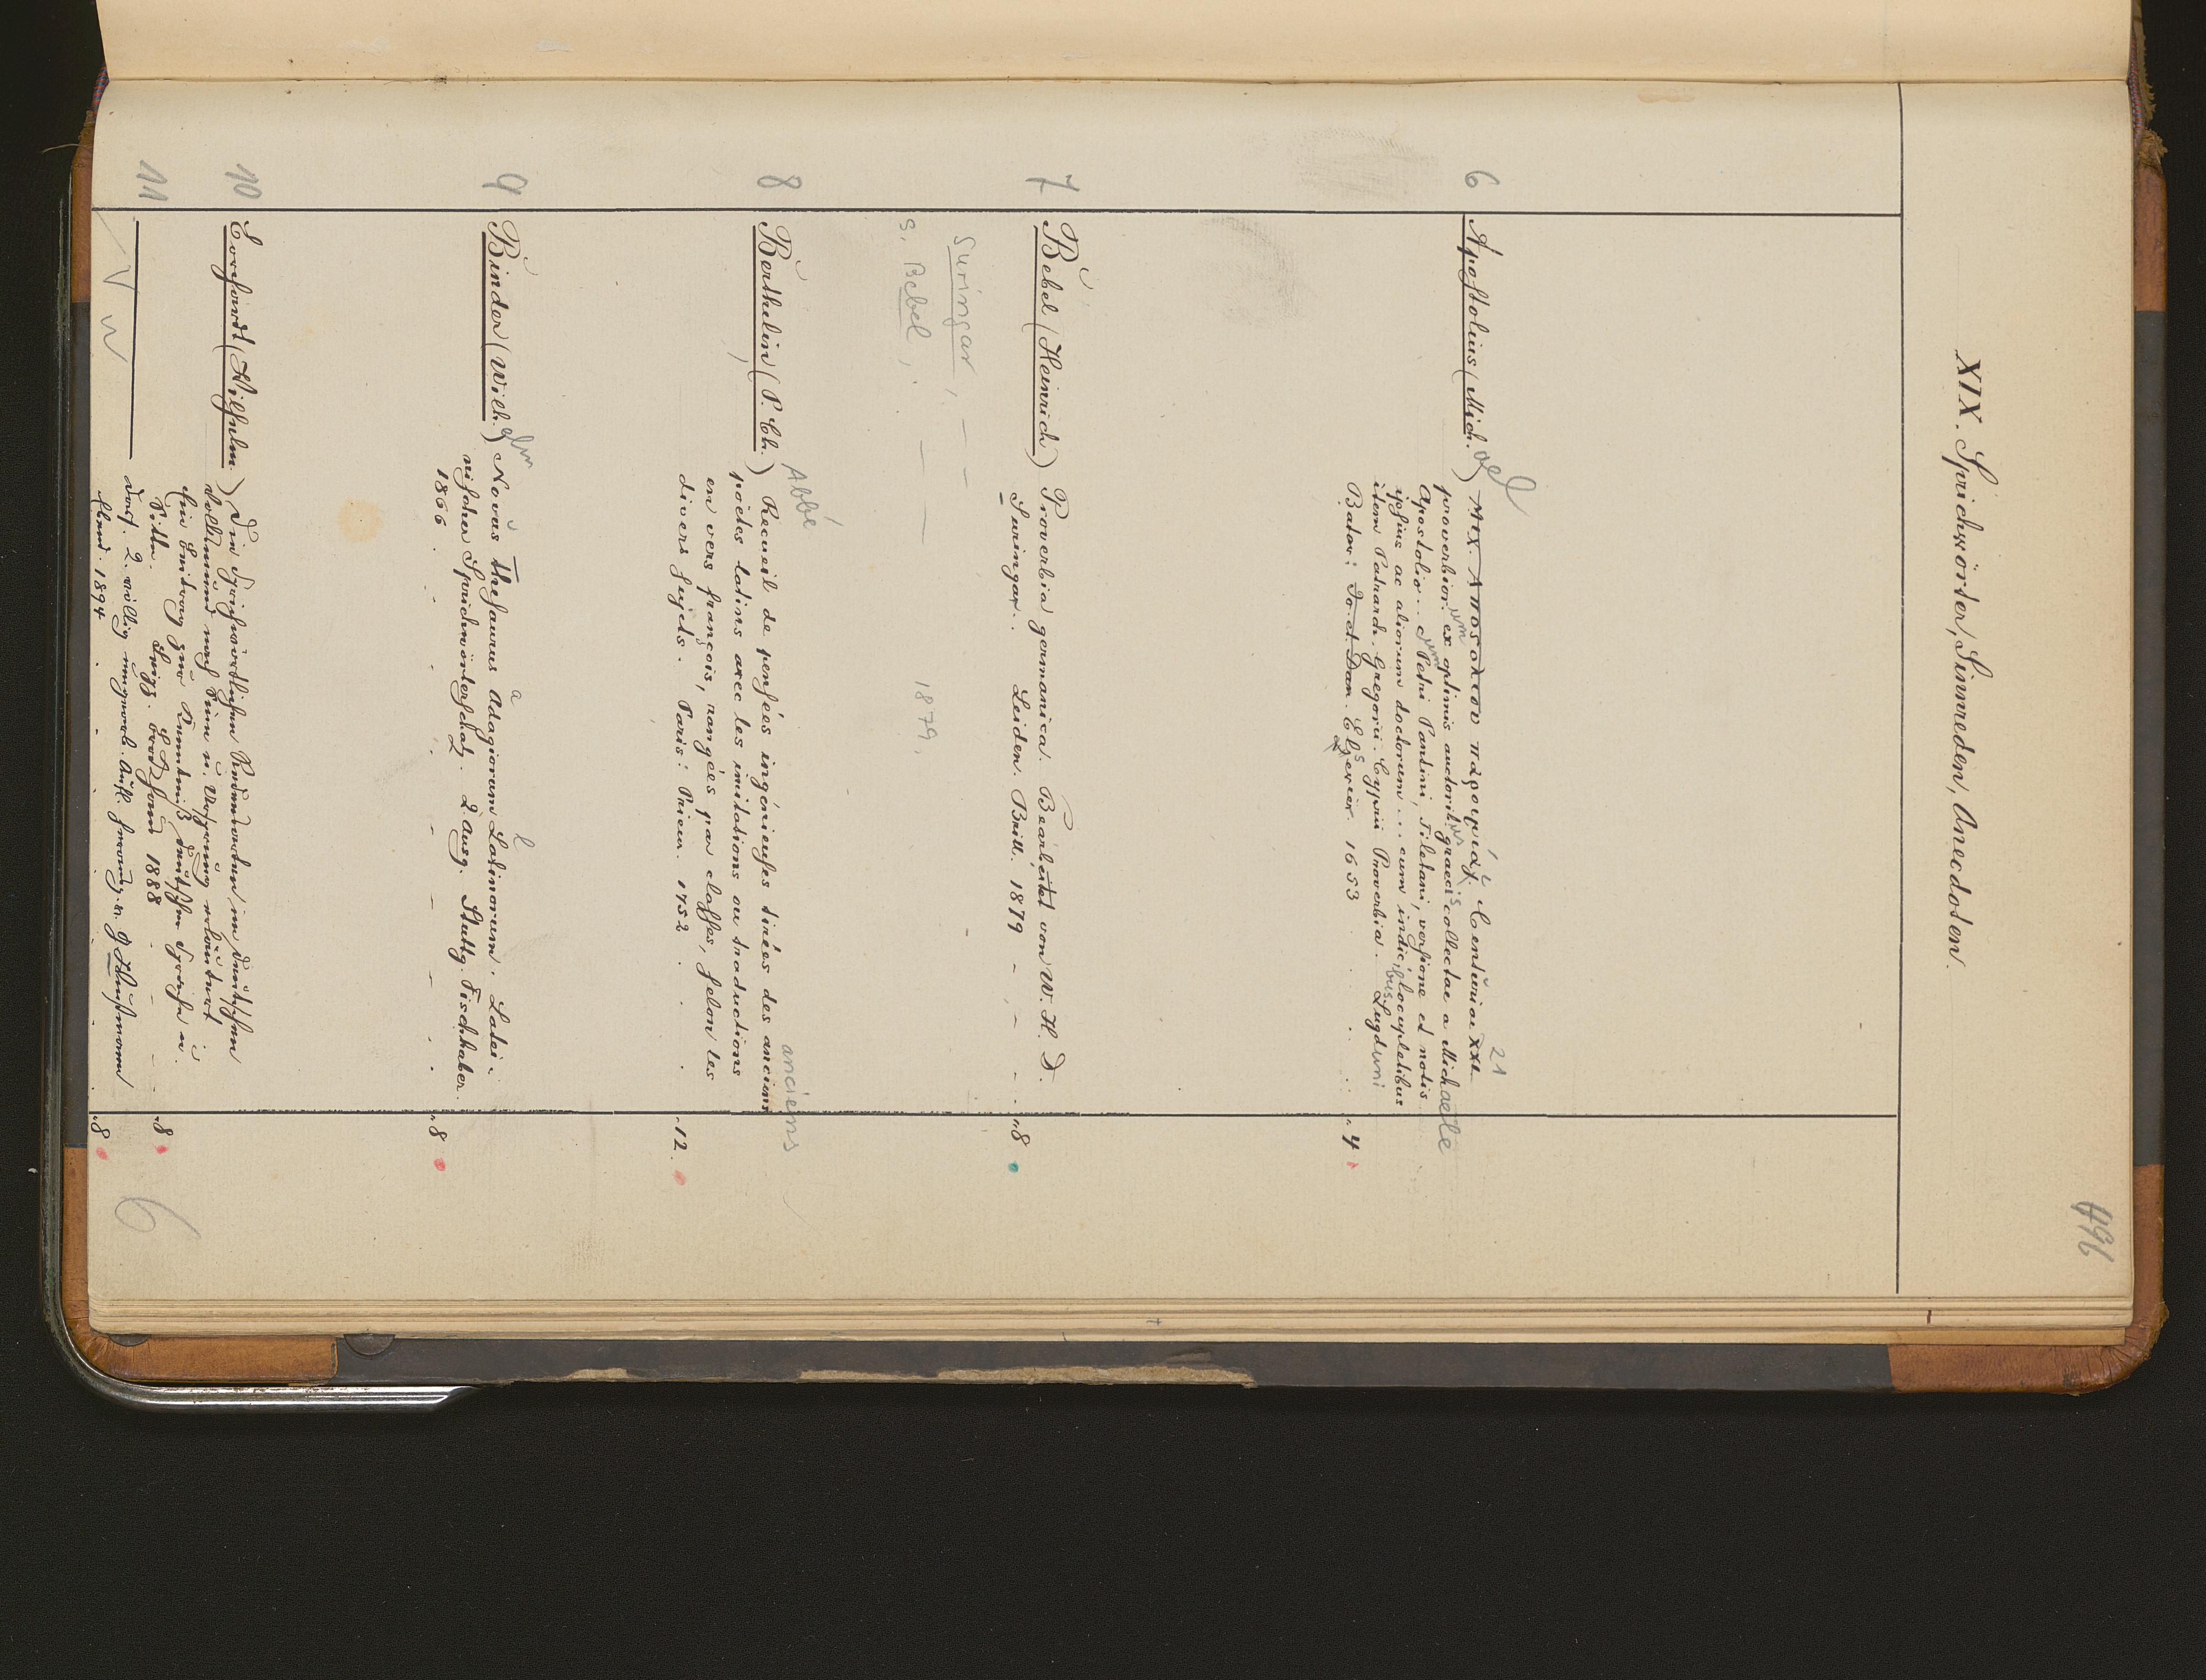 496
XIX. Sprichwörter, Sinnreden, Anecdoten.
6 Apostolius (Mich.ael) ΜΙΧ. ΑΠΟΣΟΛΙΟΥ παροιμίαι. Centuriae XXI. 21
proverbior.um ex optimis auctorib.us graecis collectae a Michaele
Apostolio.. cum Petri Pantini, Tiletani, versione et notis
ipsius ac aliorum doctorum... cum indicibus locupletibus
item Patriarch. Gregorii Cyprii Proverbia. Lugduni
Bator: Jo. et Dan. Elsevier. 1653 . . . "4
7 Bebel (Heinrich) Proverbia germanica. Bearbeitet von W. H. D.
Suringar. Leiden. Brill. 1879 - - - "8
Suringar, - -
s. Bebel, . — — 1879.
Abbé anciens
8 Berthelin (P. Ch.) Recueil de pensées ingénieuses tirés des anciens
poètes latins avec les imitations ou traductions
en vers françois, rangées par classes, selon les
divers sujets. Paris: Prieur. 1752 . . . "12
9 Binder (Wilh.elm) Novus thesaurus adagiorum Latinorum. Latei-
nischer Sprichwörterschatz. 2 Ausg. Stuttg. Fischhaber.
1866 . - . - - - . "8
10 Borchardt (Wilhelm) Die sprichwörtlichen Redensarten im deutschen
Volksmund nach Sinn u. Ursprung erläutert,
Ein Beitrag zur Kenntniß deutscher Sprache u.
Sitte. Leipz. Brockhaus 1888 . - - "8
11 ——— Dass. 2. völlig umgearb. Aufl. herausg. v. G. Wustmann
Ebend. 1894 . . . . "8
6